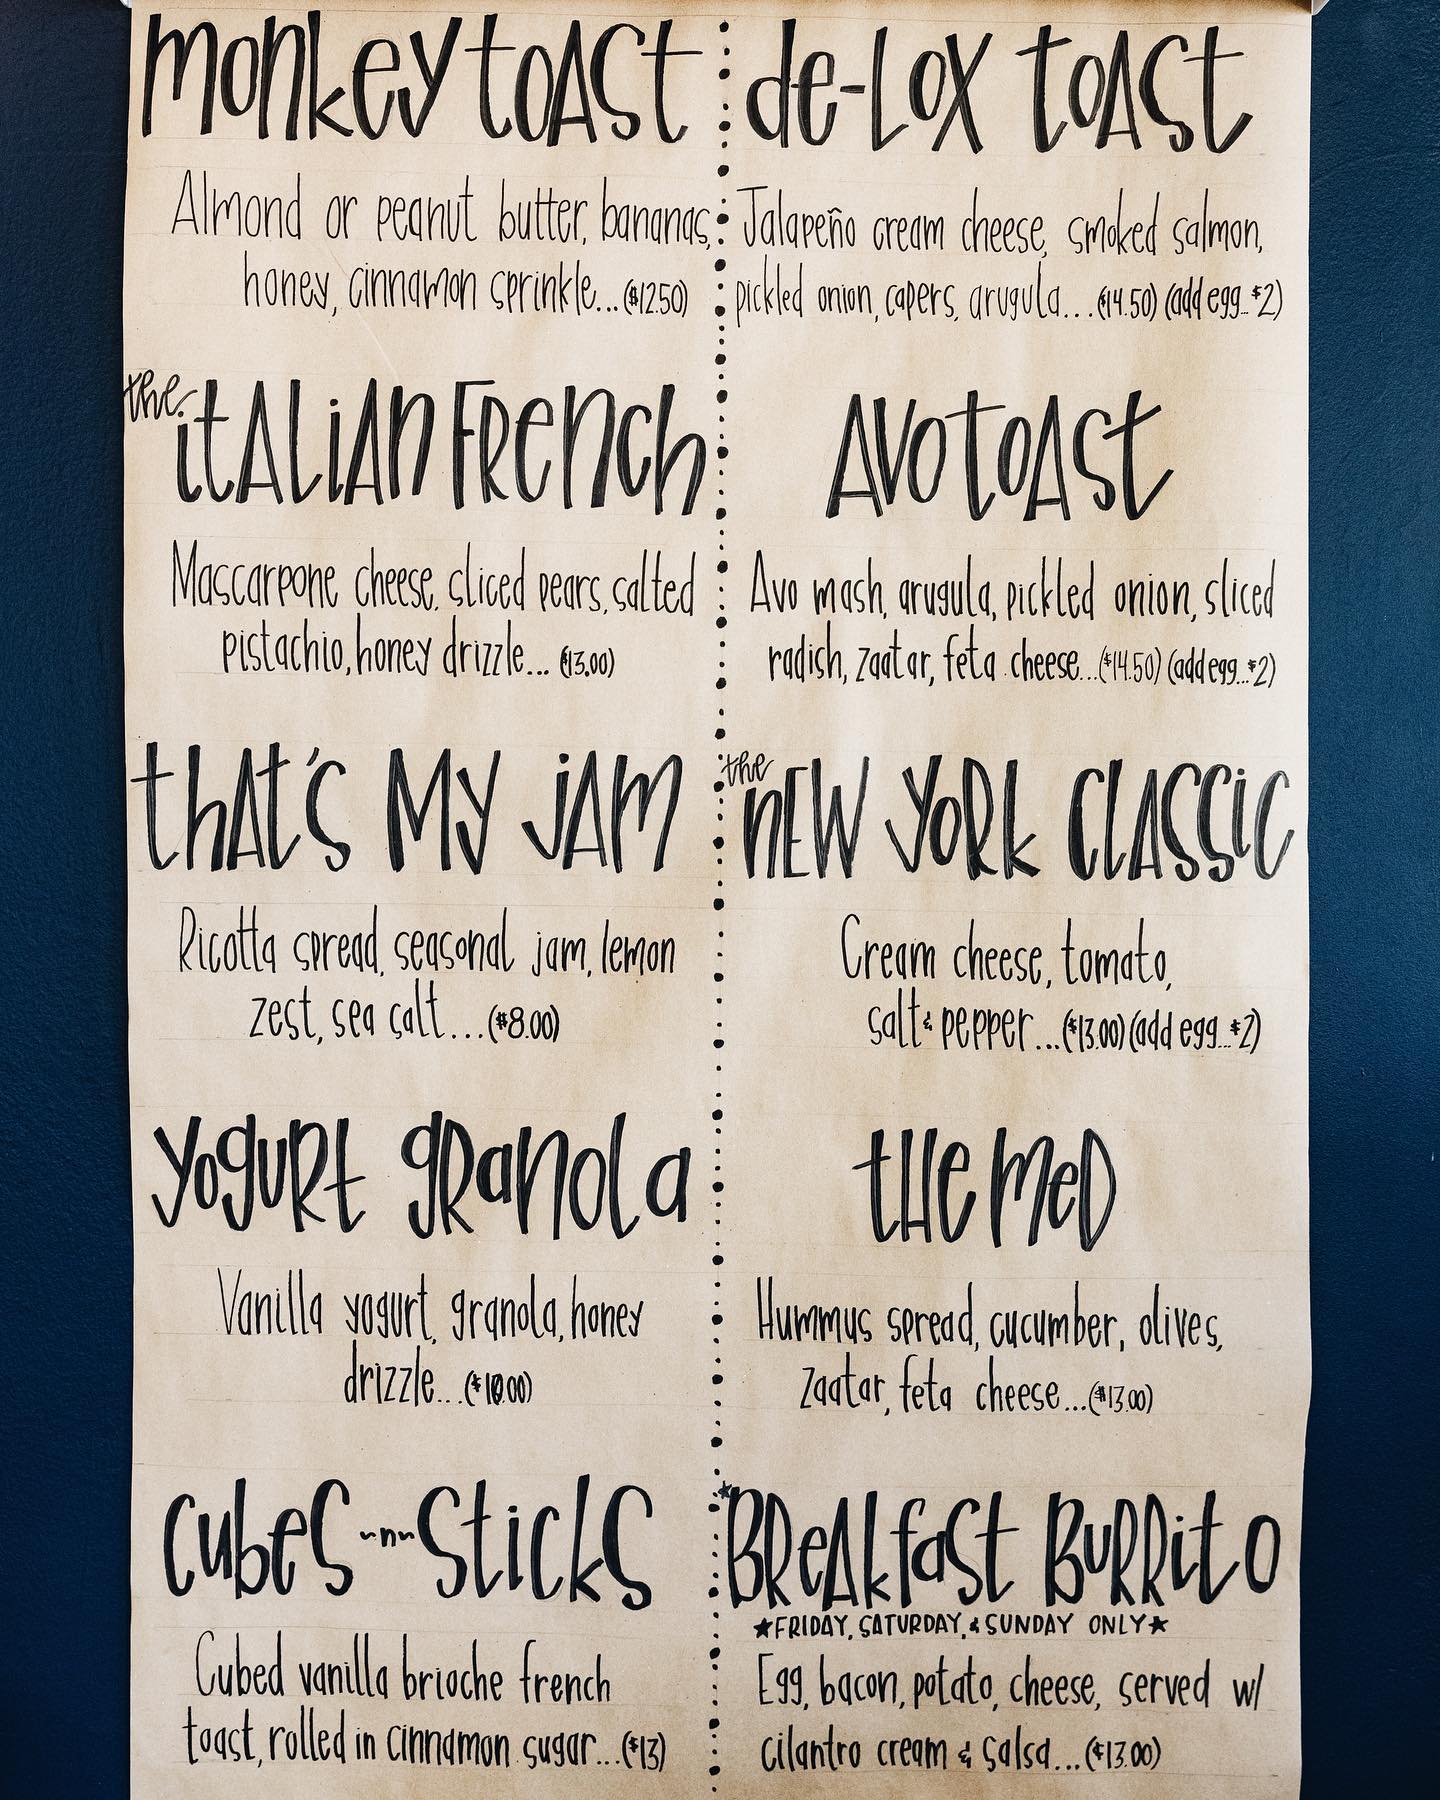 monkey toast
Almond or peanut butter, bananas,
honey, cinnamon sprinkle...($12.50)
the italian french
Mascarpone cheese, sliced pears, salted
pistachio, honey drizzle... ($13.00)
that's my jam
Ricotta spread, seasonal jam, lemon
zest, sea salt...($8.00)
yogurt granola
Vanilla yogurt, granola, honey
drizzle...($10.00)
cubes ~n~ sticks
Cubed vanilla brioche french
toast, rolled in cinnamon sugar...($13)
de-lox toast
Jalapeño cream cheese, smoked salmon,
pickled onion, capers, arugula...($14.50) (add egg...$2)
avo toast
Avo mash, arugula, pickled onion, sliced
radish, zaatar, feta cheese...($14.50) (add egg...$2)
the new york classic
Cream cheese, tomato,
salt & pepper...($13.00) (add egg...$2)
the med
Hummus spread, cucumber, olives,
zaatar, feta cheese...($13.00)
★Breakfast Burrito
★FRIDAY, SATURDAY, & SUNDAY ONLY★
Egg, bacon, potato, cheese, served w/
cilantro cream & salsa...($13.00)